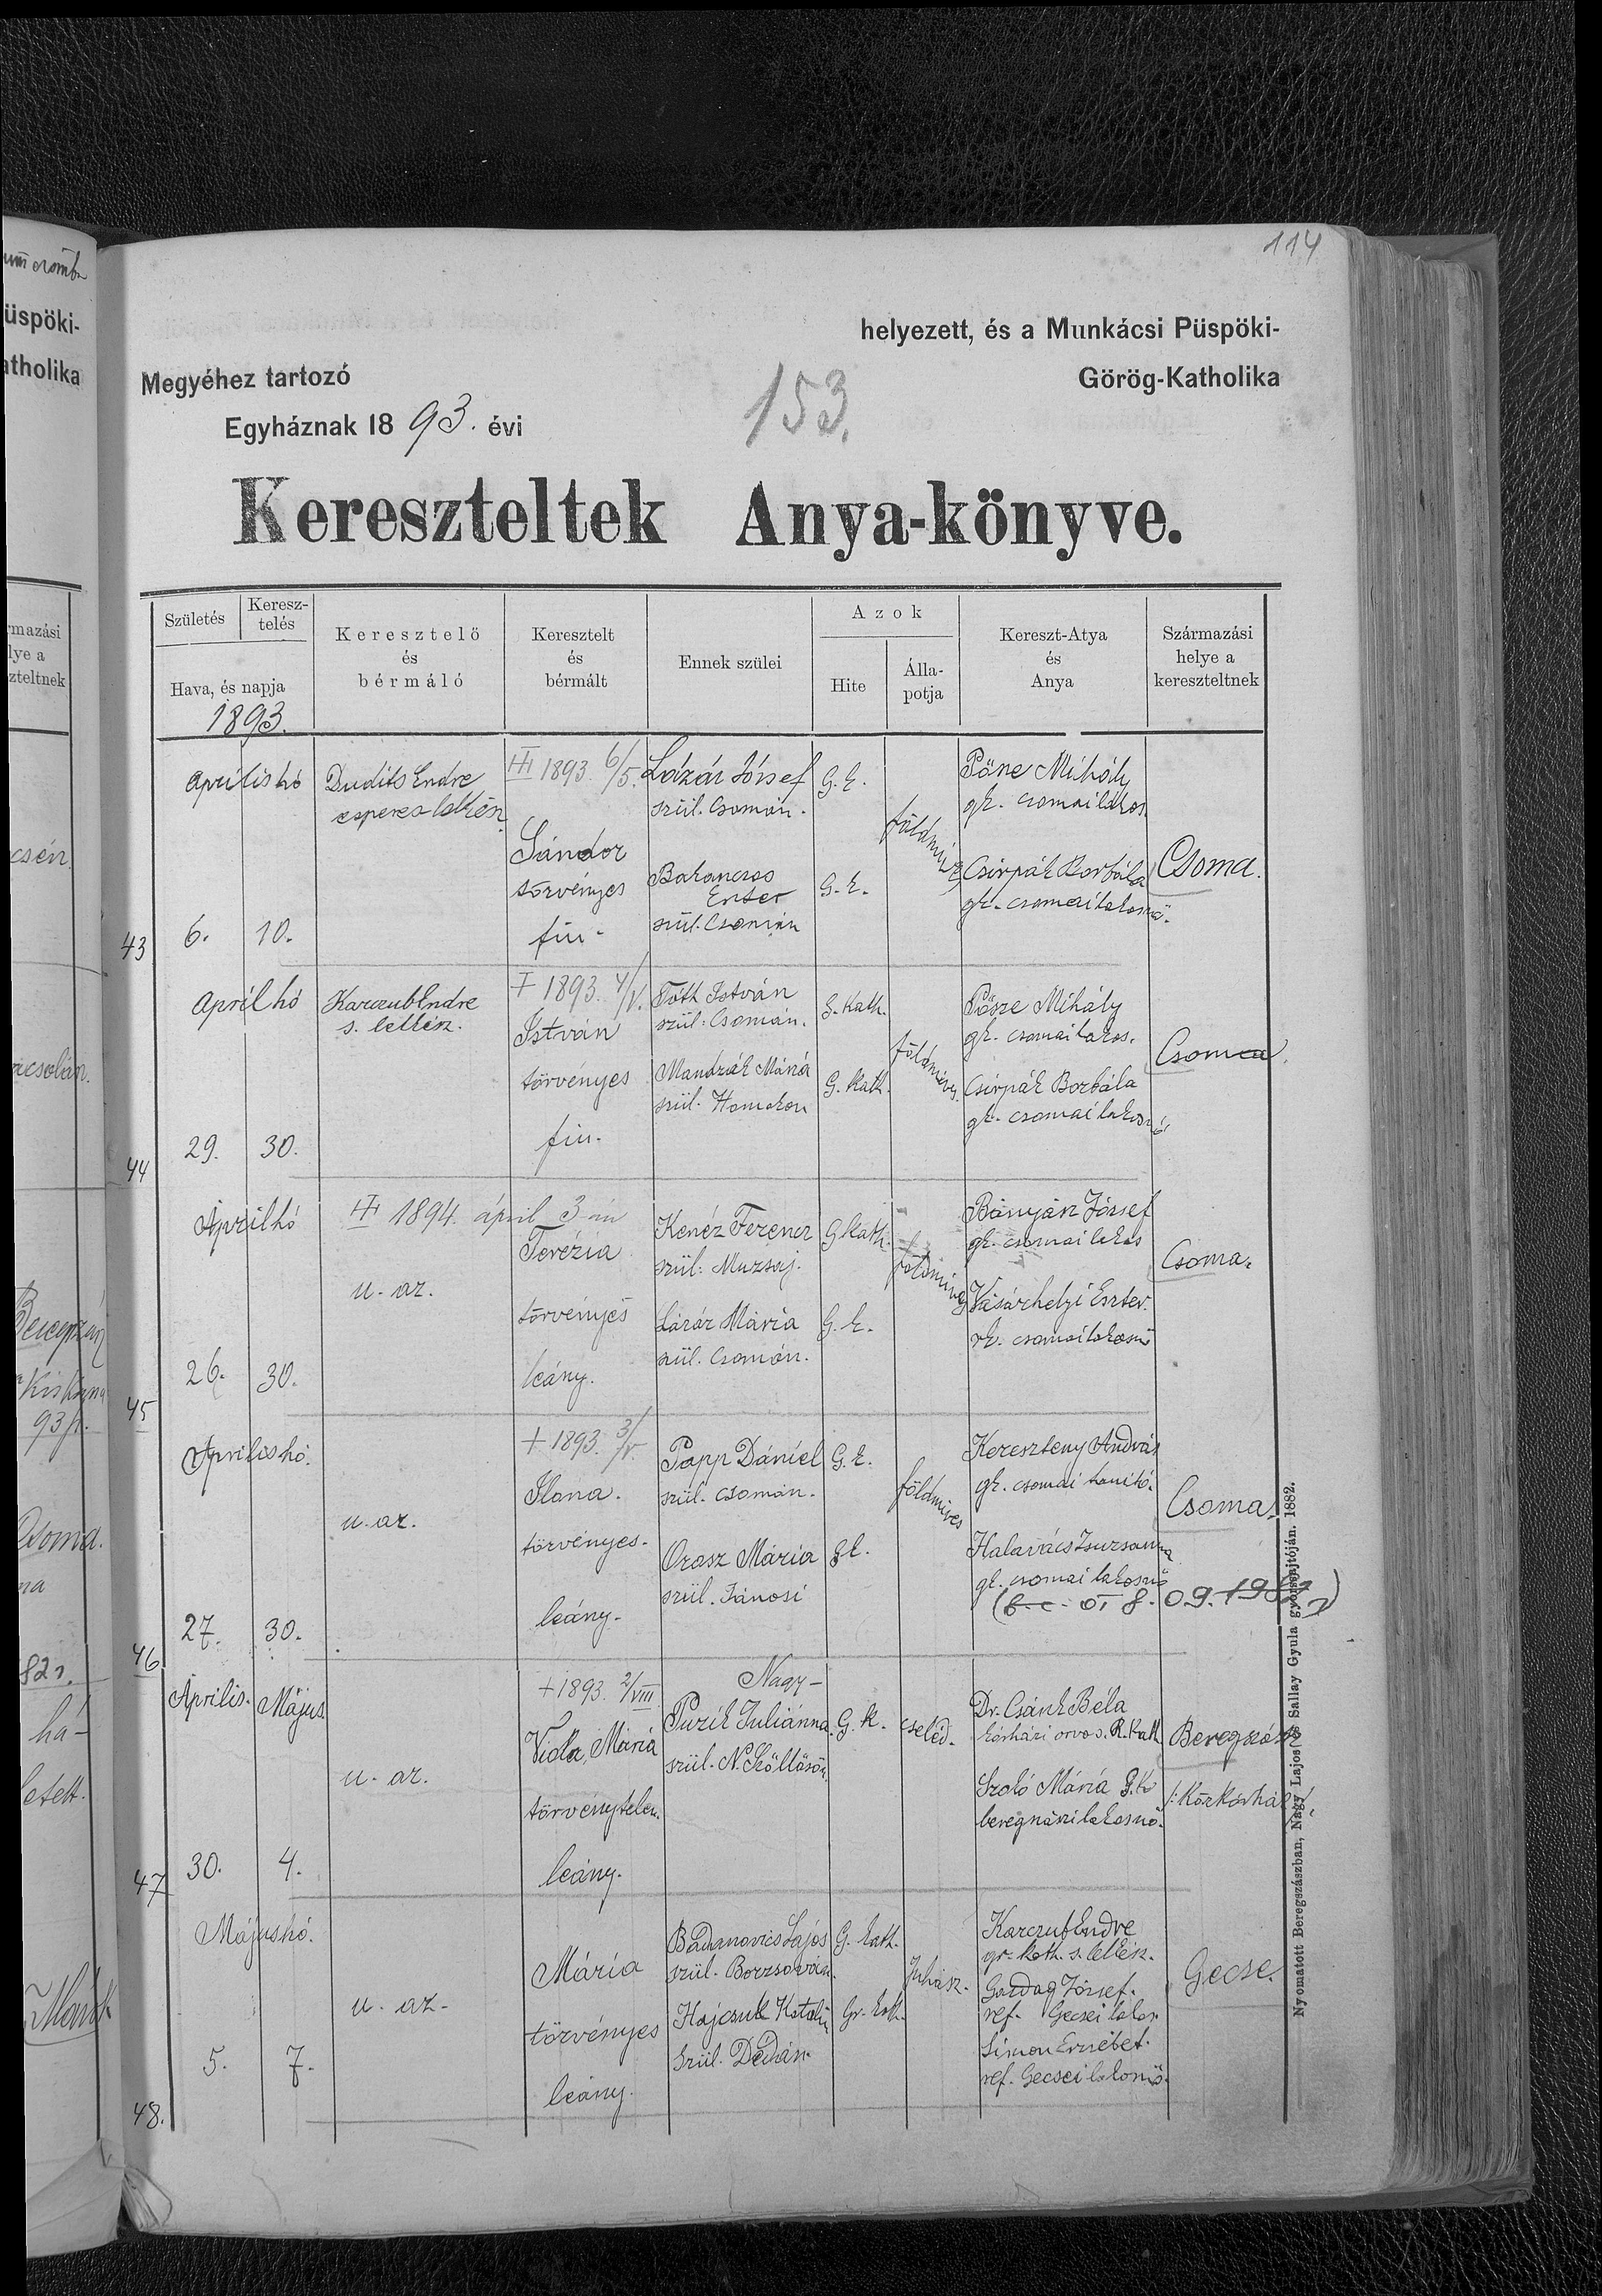 114
helyezett, és a Munkácsi Püspöki-
Megyéhez tartozó
Görög-Katholika
Egyháznak 1893. évi
153.
Kereszteltek Anya-könyve.
Születés
Keresz-
telés
Hava, és napja
1893.
Keresztelő
és
bérmáló
Keresztelt
és
bérmált
Ennek szülei
Azok
Hite
Álla-
potja
Kereszt-Atya
és
Anya
Származási
helye a
kereszteltnek
43
április hó
6. 10.
Dudits Endre
esperes lelkész
1893. 6/5.
Sándor
törvényes
fiu.
Lázár József
szül. Csomán.
Bakancsos
Eszter
szül. Csomán
G. k.
G. k.
földmíves
Pősze Mihály
gk. csomai lakos.
Csirpák Borbála
gk. csomai lakosnő.
Csoma.
44
április hó
29. 30.
Karczub Endre
s. lelkész.
† 1893. 4/V.
István
törvényes
fiu.
Tóth István
szül: Csomán.
Mandzák Mária
szül. Homokon
G. Kath.
G. Kath.
földmíves
Pősze Mihály
gk. csomai lakos.
Csirpák Borbála
gk. csomai lakosnő
Csoma.
45
Április hó
26. 30.
u. az.
1894. ápril 3-án
Terézia
törvényes
leány.
Kenéz Ferencz
szül: Muzsaj.
Lázár Mária
szül. Csomán.
G Kath.
G. k.
földmíves
József
gk. csomai lakos
Vásárhelyi Eszter.
rk. csomai lakosnő
Csoma.
46
Április hó.
27. 30.
u. az.
+ 1893. 3/V.
Ilona.
törvényes.
leány.
Papp Dániel
szül. Csomán.
Orosz Mária
szül. Jánosi
G. k.
gk.
földmíves
Kereszteny András
gk. csomai tanító.
Halavács Zsuzsanna
gk. csomai lakosnő
Csoma.
47
Április. Május
30. 4.
u. az.
+ 1893. 2/VIII
Viola, Mária
törvénytelen.
leány.
Nagy-
Puzik Juliánna.
szül. N. Szőllősön
G. k.
cseléd.
Dr. Csánk Béla
kórházi orvos. R. Kath
Szaló Mária g. k.
beregszászi lakosnő.
Beregszász
/: Közkórház /.
48.
Május hó.
5. 7.
u. az.
Mária
törvényes
leány.
Bacsanovics Lajos
szül. Borzsován.
Hajcsuk Katalin
szül. Dédán.
G. kath.
Gr. kath.
Juhász.
Karczub Endre
gr. kath. s. lelkész.
Gazdag József.
ref. Gecsei lakos.
Simon Erzsébet.
ref. Gecsei lakosnő.
Gecse.
Nyomatott Beregszászban, Nagy Lajos és Sallay Gyula gyorssajtóján. 1882.